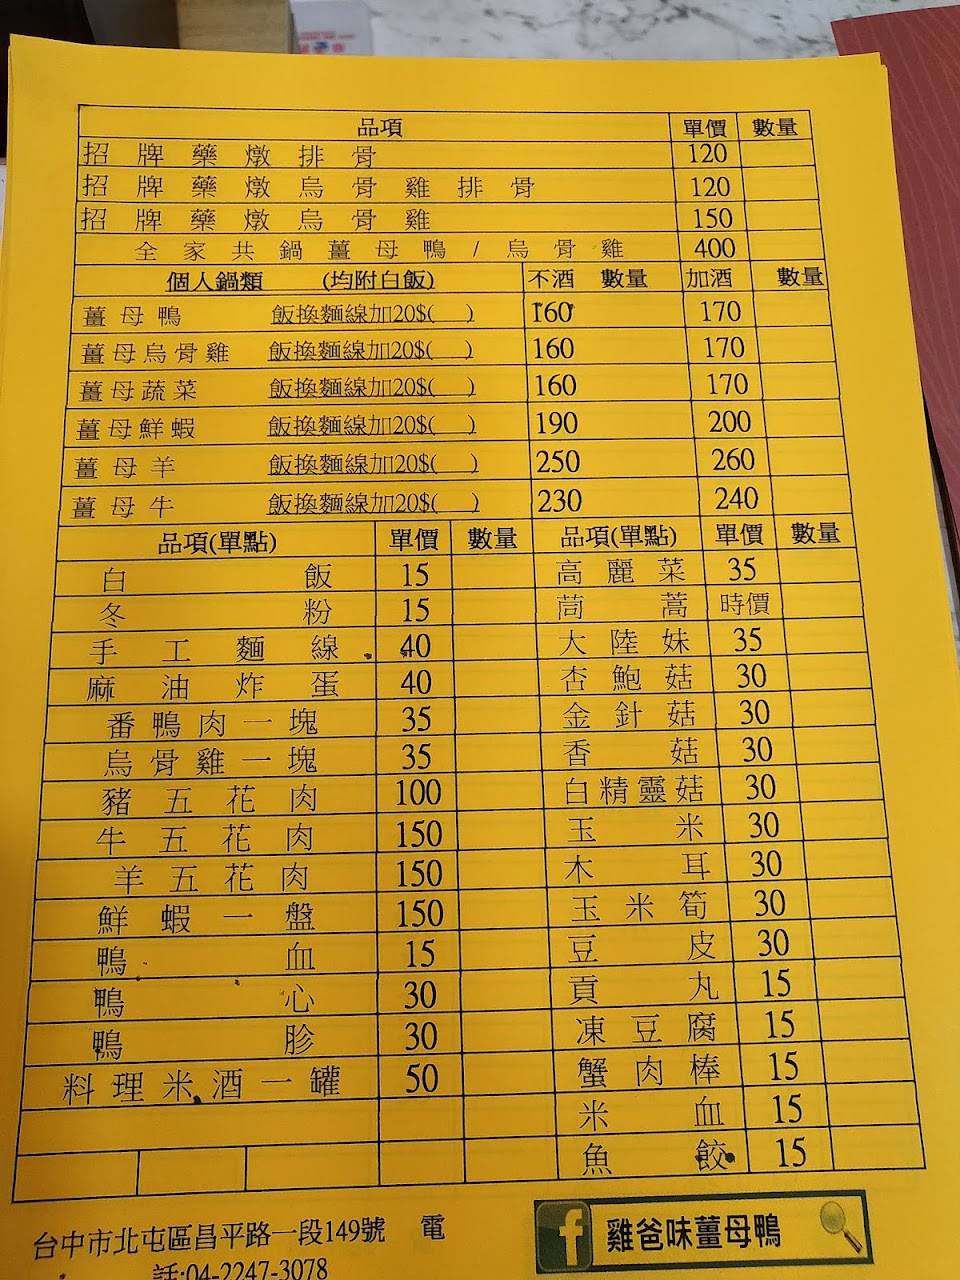 品項 單價 數量
招牌藥燉排骨 120
招牌藥燉烏骨雞排骨 120
招牌藥燉烏骨雞 150
全家共鍋薑母鴨/烏骨雞 400
個人鍋類 (均附白飯) 不酒 數量 加酒 數量
薑母鴨 飯換麵線加20$( ) 160 170
薑母烏骨雞 飯換麵線加20$( ) 160 170
薑母蔬菜 飯換麵線加20$( ) 160 170
薑母鮮蝦 飯換麵線加20$( ) 190 200
薑母羊 飯換麵線加20$( ) 250 260
薑母牛 飯換麵線加20$( ) 230 240
品項(單點) 單價 數量 品項(單點) 單價 數量
白飯 15 高麗菜 35
冬粉 15 茼蒿 時價
手工麵線 40 大陸妹 35
麻油炸蛋 40 杏鮑菇 30
番鴨肉一塊 35 金針菇 30
烏骨雞一塊 35 香菇 30
豬五花肉 100 白精靈菇 30
牛五花肉 150 玉米 30
羊五花肉 150 木耳 30
鮮蝦一盤 150 玉米筍 30
鴨血 15 豆皮 30
鴨心 30 貢丸 15
鴨胗 30 凍豆腐 15
料理米酒一罐 50 蟹肉棒 15
米血 15
魚餃 15
台中市北屯區昌平路一段149號 電
話:04-2247-3078
f 雞爸味薑母鴨